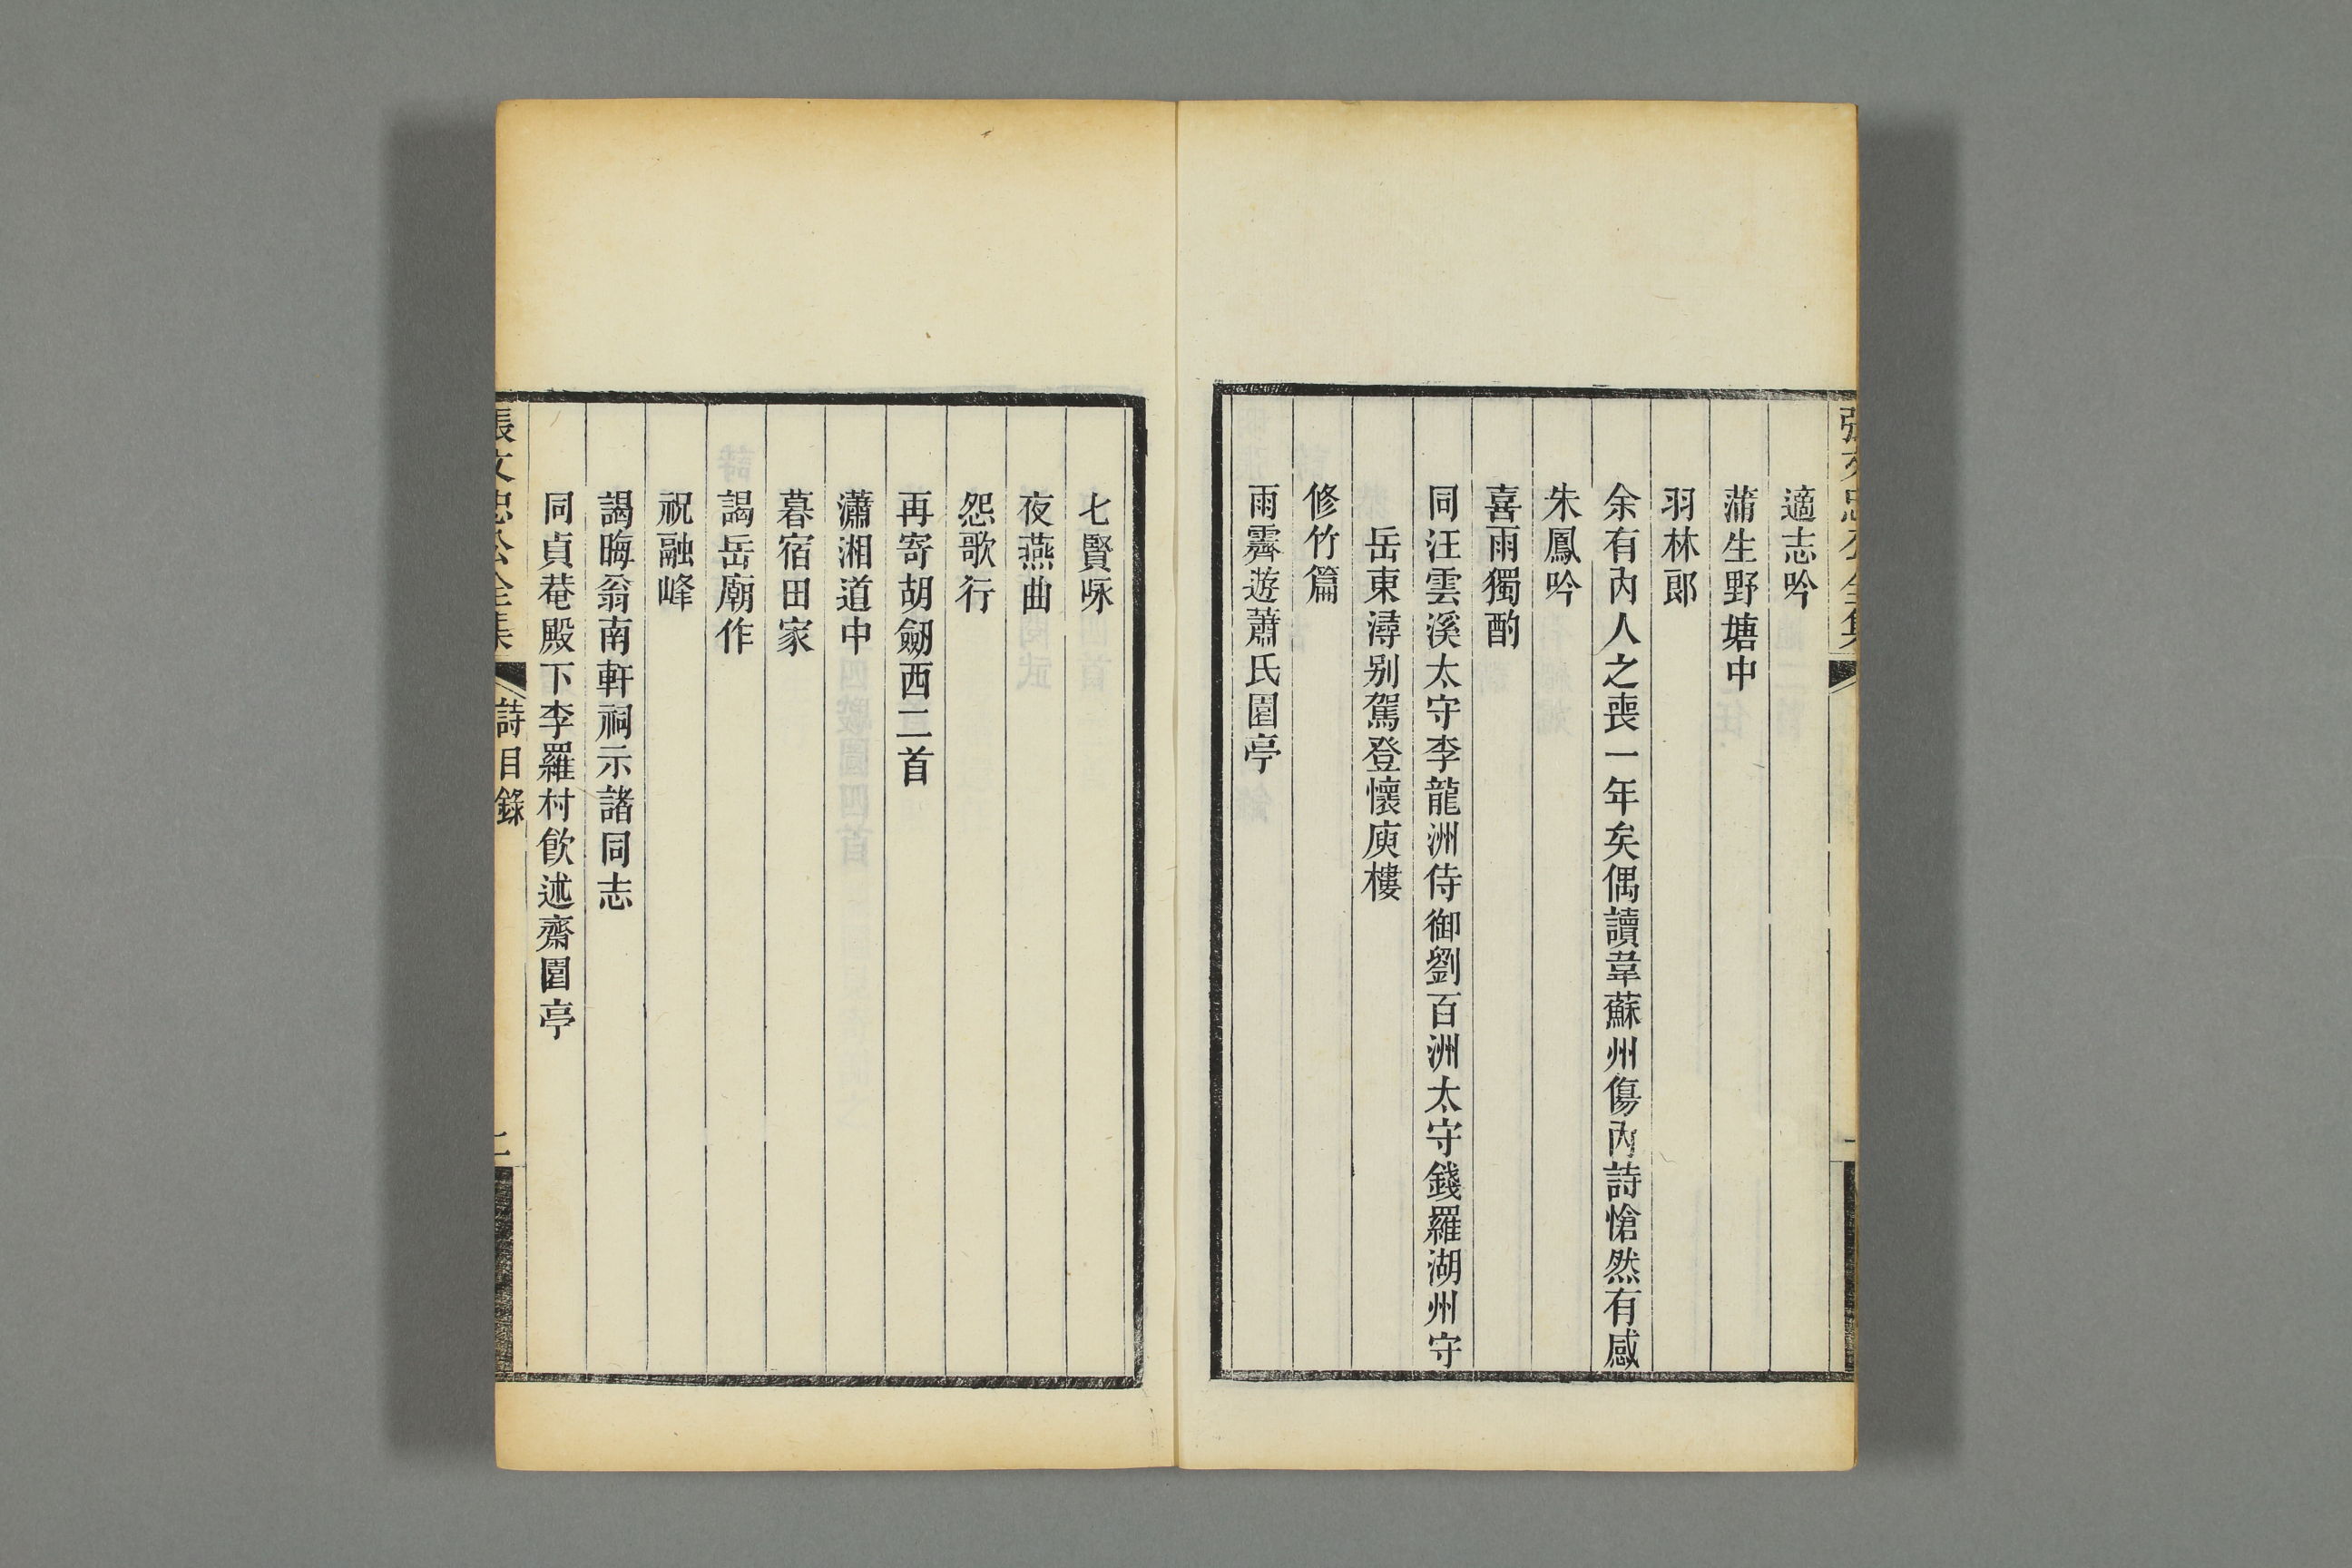 張文忠公全集
適志吟
蒲生野塘中
羽林郎
余有內人之喪一年矣偶讀韋蘇州傷內詩愴然有感
朱鳳吟
喜雨獨酌
同汪雲溪太守李龍洲侍御劉百洲太守錢羅湖州守
岳東潯别駕登懷庾樓
修竹篇
雨霽遊蕭氏園亭
七賢咏
夜燕曲
怨歌行
再寄胡劒西二首
瀟湘道中
暮宿田家
謁岳廟作
祝融峰
謁晦翁南軒祠示諸同志
同貞菴殿下李羅村飲述齋園亭
張文忠公全集 詩目錄 二